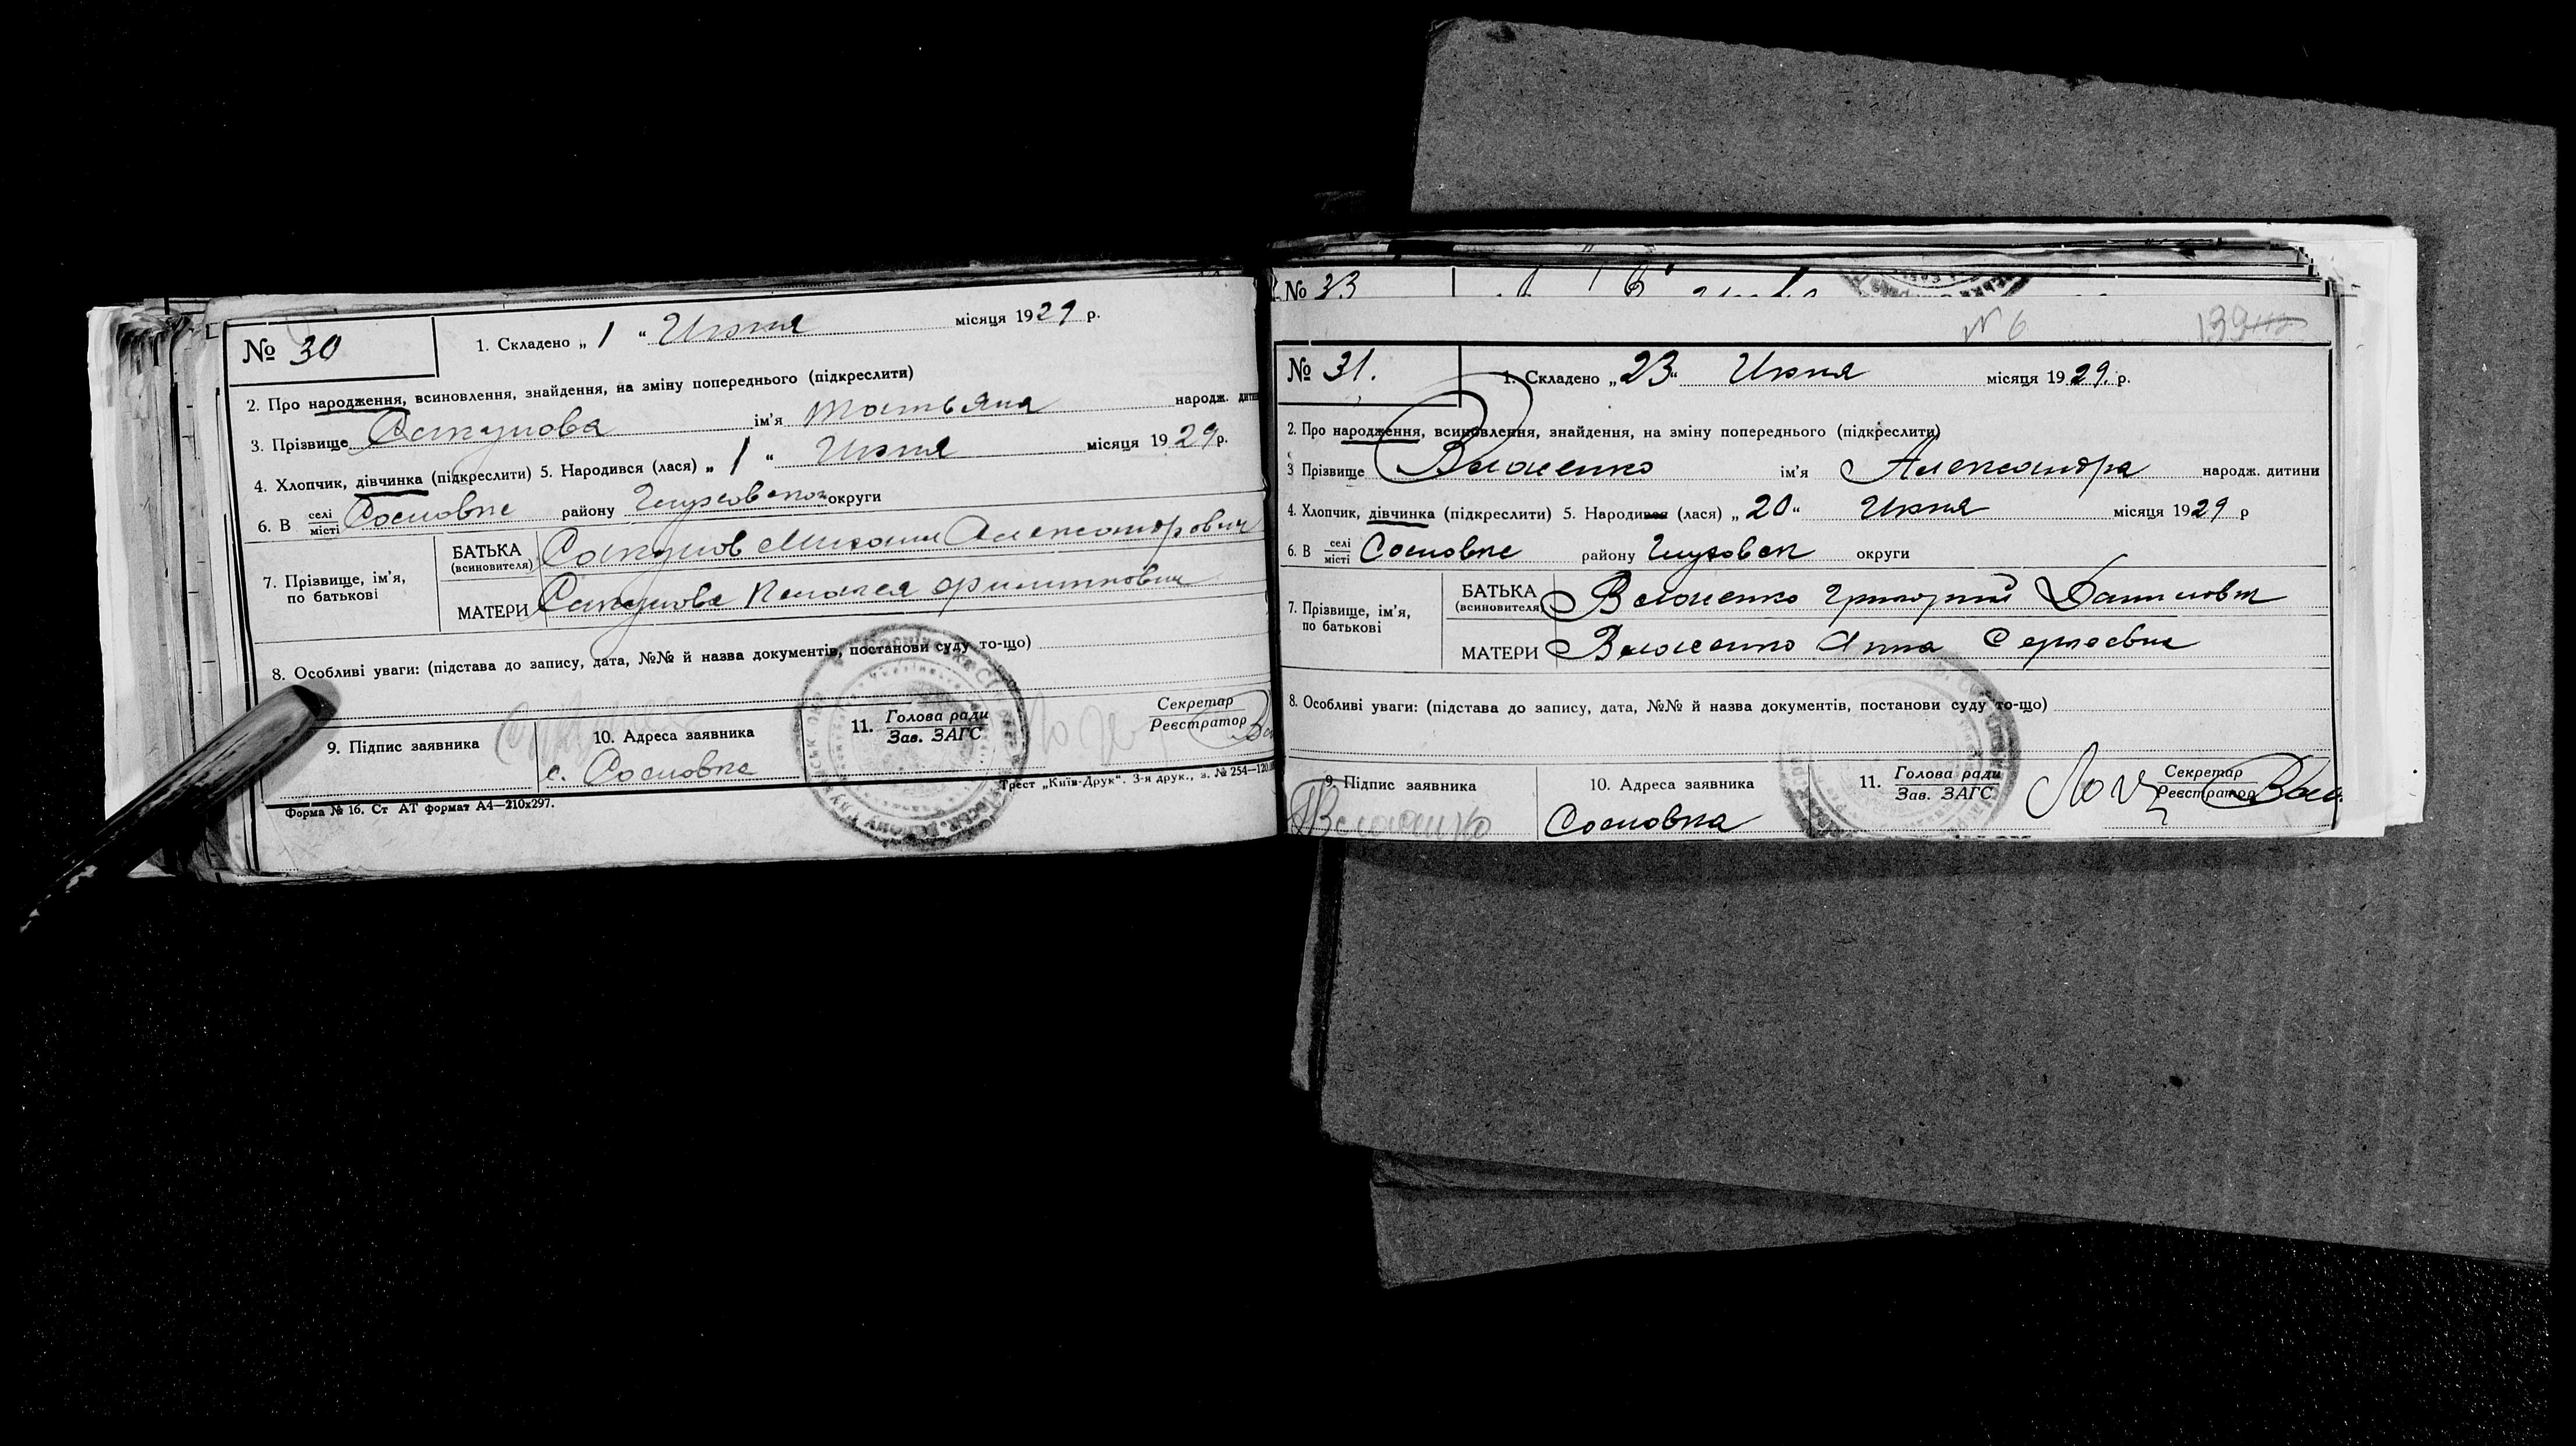 № 30
1. Складено „ 1 “ Июня місяця 1929 р.
2. Про народження, всиновлення, знайдення, на зміну попереднього (підкреслити)
3. Прізвище Сакунова ім'я Татьяна народж.
4. Хлопчик, дівчинка (підкреслити) 5. Народився (лася) „ 1 “ Июня місяця 1929 р.
6. В селі місті Сосновке району Глуховской округи
7. Прізвище, ім'я, по батькові
БАТЬКА (всиновителя) Сакунов Михаил Александрович
МАТЕРИ Сакунова
8. Особливі уваги: (підстава до запису, дата, №№ й назва документів, постанови суду то-що)
9. Підпис заявника
10. Адреса заявника
с. Сосновка
11. Голова ради Зав. ЗАГС
Секретар Реєстратор
Форма № 16. Ст АТ формат А4—210х297.
Трест „Київ-Друк“. 3-я друк., з. № 254—120
№ 33
N 6
139
№ 31.
1. Складено „23“ Июня місяця 1929. р.
2. Про народження, всиновлення, знайдення, на зміну попереднього (підкреслити)
3 Прізвище Ім'я Александра народж. дитини
4. Хлопчик, дівчинка (підкреслити) 5. Народився (лася) „20“ Июня місяця 1929 р
6. В селі місті Сосновке району Глуховск округи
7. Прізвище, ім'я, по батькові
БАТЬКА (всиновителя) Григорий Данилович
МАТЕРИ Анна Сергеевна
8. Особливі уваги: (підстава до запису, дата, №№ й назва документів, постанови суду то-що)
9. Підпис заявника
10. Адреса заявника
Сосновка
11. Голова ради Зав. ЗАГС
Секретар Реєстратор